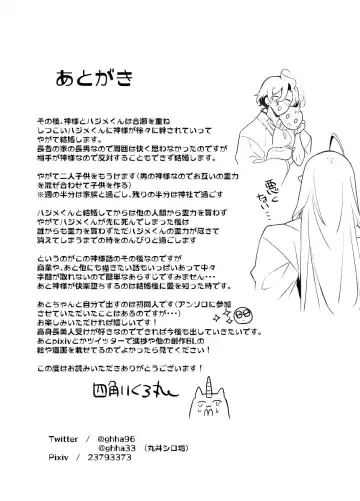 あとがき
その後、神様とハジメくんは合瀬を重ね
しつこいハジメくんに神様が徐々に絆されていって
やがて結婚します。
長者の家の長男なので周囲は快く思わなかったのですが
相手が神様なので反対することもできず結婚します。
やがて二人子供をもうけます(男の神様なのでお互いの霊力
を混ぜ合わせて子供を作る)
※週の半分は家族と過ごし、残りの半分は神社で過ごす
ハジメくんと結婚してからは他の人間から霊力を貰わず
やがてハジメくんが先に死んでしまった後は
誰からも霊力を貰わずただハジメくんの霊力が尽きて
消えてしまうまでの時をのんびりと過ごします
というのがこの神様話のその後なのですが
商業や、あと他にも描きたい話もいっぱいあって中々
手間が取れないので簡単なあらすじですみません・・・
あと神様が快楽堕ちするのは結婚後に愛を知った時です。
あとちゃんと自分で出すのは初同人です(アンソロに参加
させていただいたことはあるのですが・・・)
お楽しみいただければ嬉しいです!
高身長美人受けが好きなのでできれば今後も出していきたいです。
あとpixivとかツイッターで進捗や他の創作BLの
絵や漫画を載せてるのでよかったら見てください!
この度はお読みいただきありがとうございました!
四角いくろ丸
悪くない…
Twitter / @ghha96
@ghha33 (丸井シロ垢)
Pixiv / 23793373